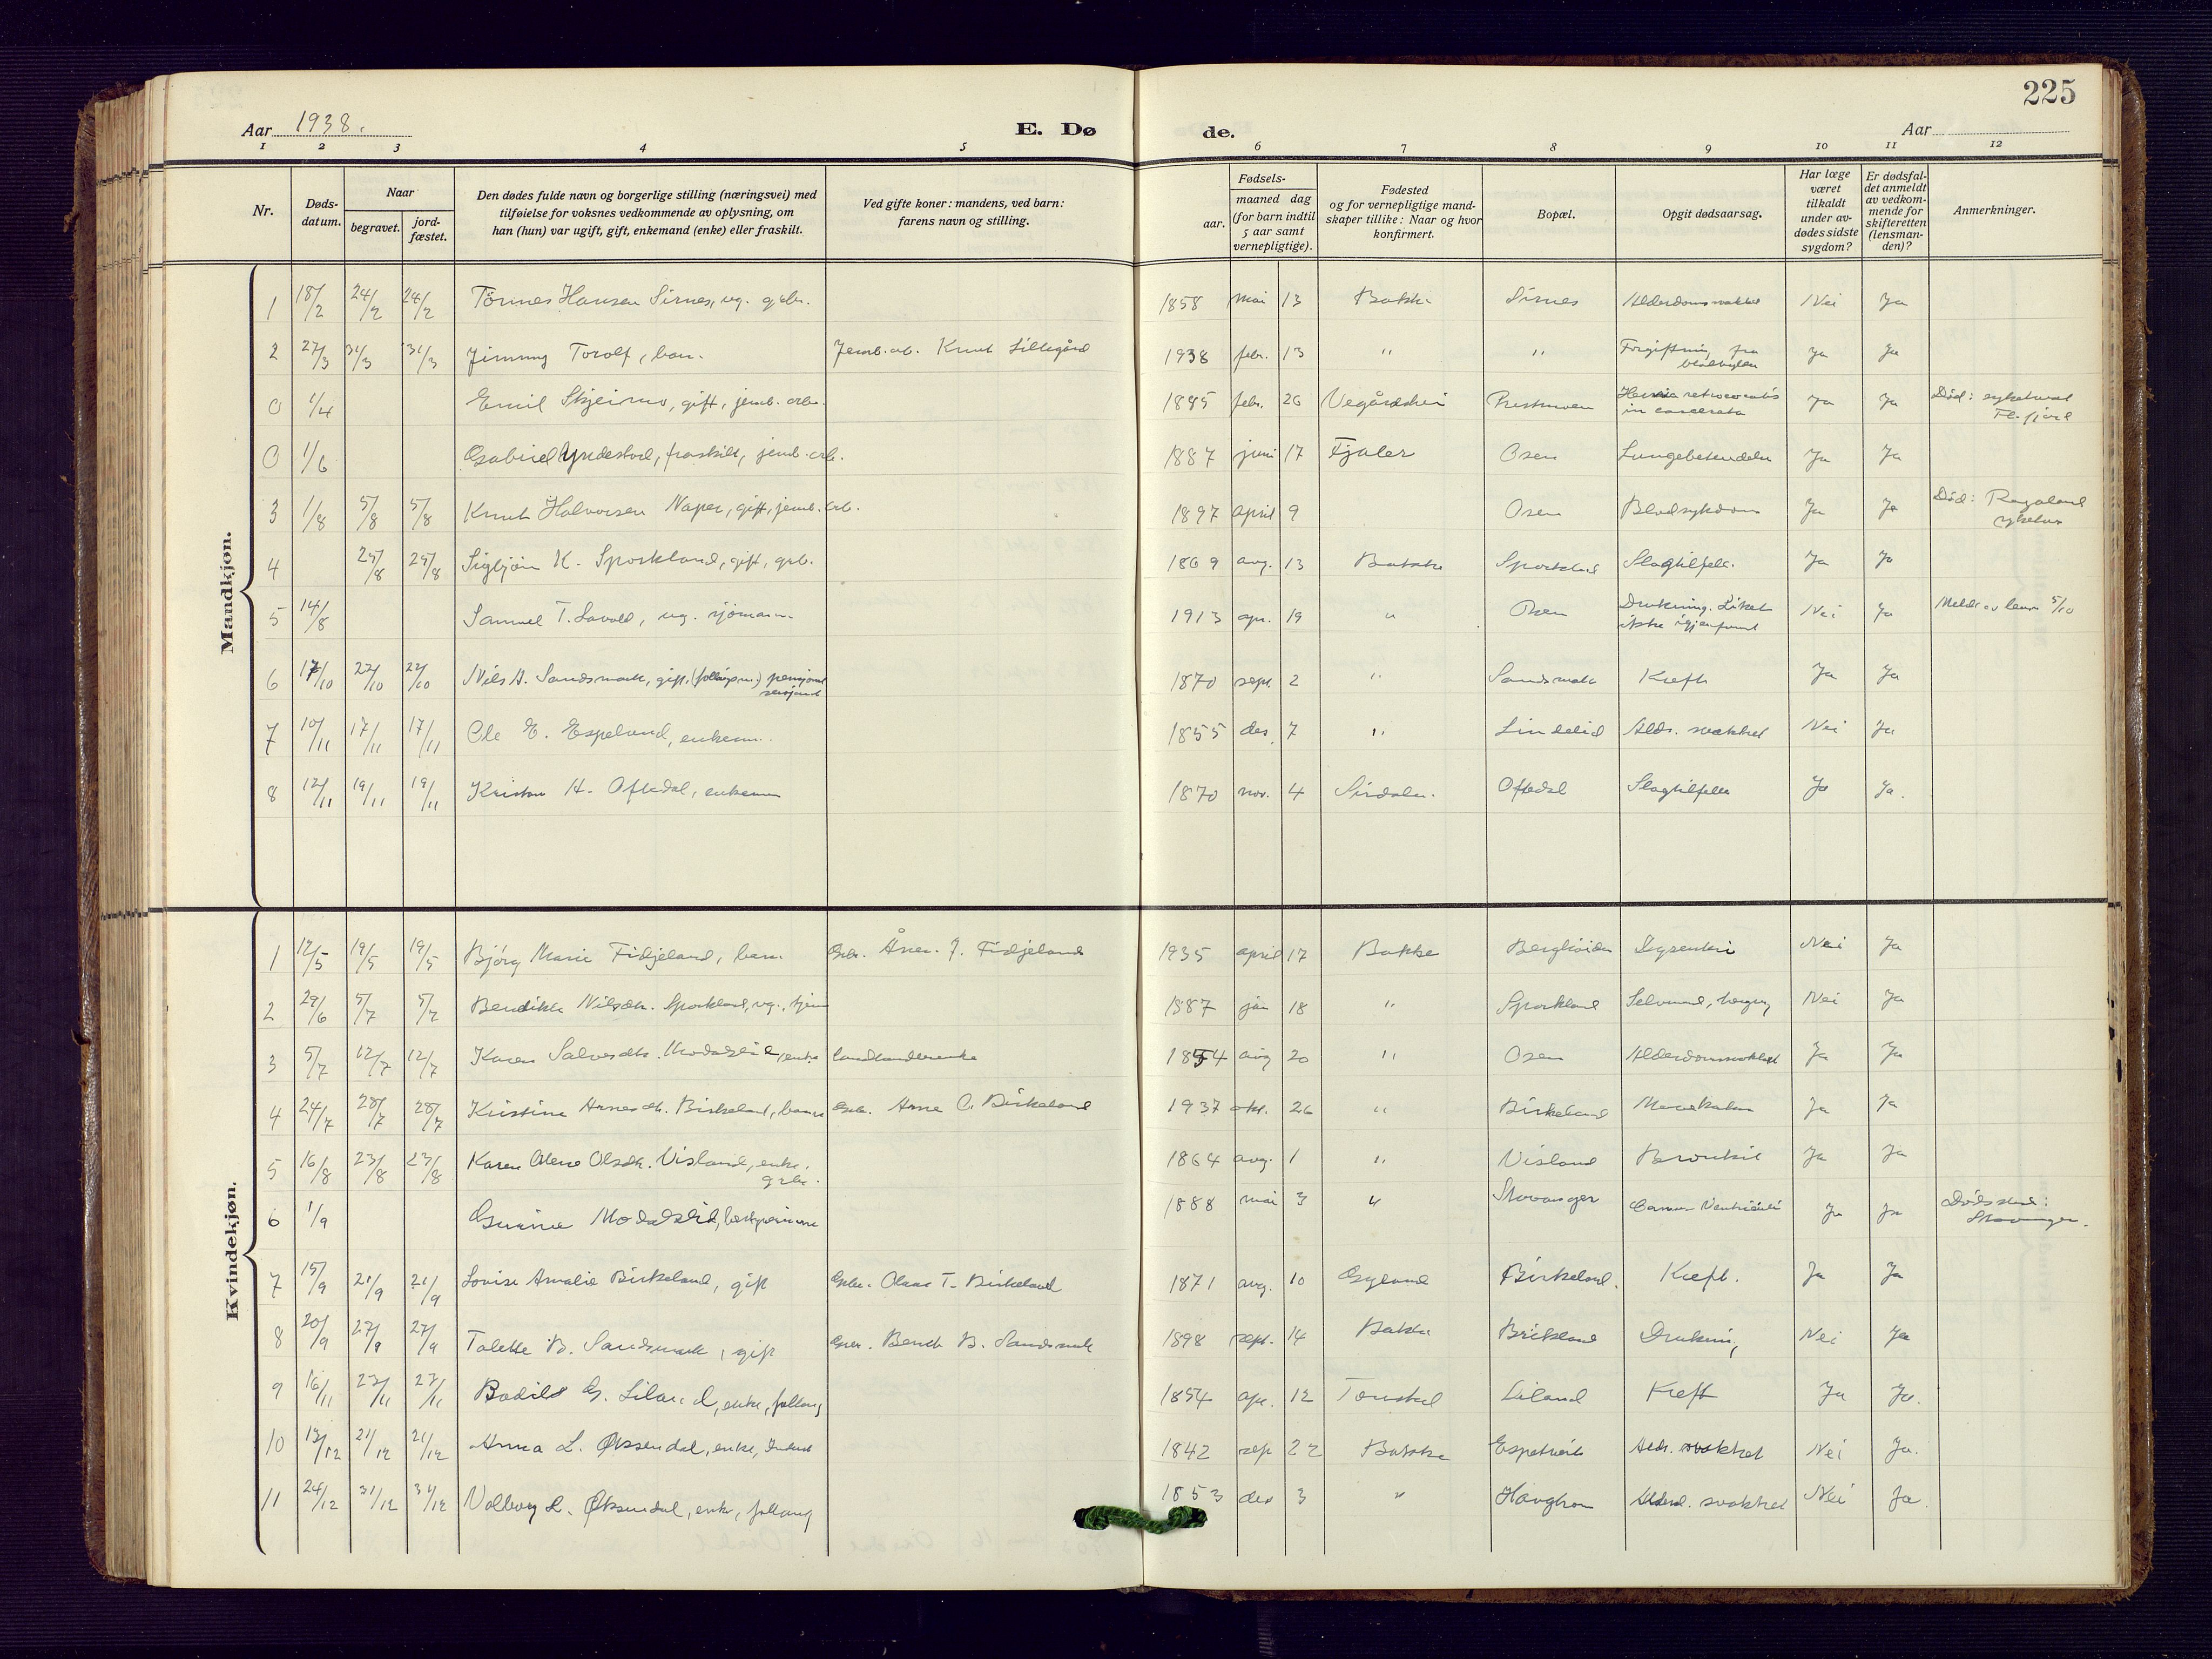 225
Aar 1938.
E. Dø
de.
Aar
1 2 3 4 5 6 7 8 9 10 11 12
Nr.
Døds-
datum.
Naar
begravet.
jord-
fæstet.
Den dødes fulde navn og borgerlige stilling (næringsvei) med
tilføielse for voksnes vedkommende av oplysning, om
han (hun) var ugift, gift, enkemand (enke) eller fraskilt.
Ved gifte koner: mandens, ved barn:
farens navn og stilling.
Fødsels-
aar.
maaned dag
(for barn indtil
5 aar samt
vernepligtige).
Fødested
og for vernepligtige mand-
skaper tillike: Naar og hvor
konfirmert.
Bopæl.
Opgit dødsaarsag.
Har læge
været
tilkaldt
under av-
dødes sidste
sygdom?
Er dødsfal-
det anmeldt
av vedkom-
mende for
skifteretten
(lensman-
den)?
Anmerkninger.
Mandkjøn.
1 18/2 24/2 24/2 Tönnes Hansen Sirnes, ug. gbr. 1858 mai 13 Bakke Sirnes Nei Ja
2 27/3 31/3 31/3 Jimmy Torolf, barn. Jernb.arb. Knut Lillegård 1938 febr. 13 " " Forgiftning fra Ja Ja
0 1/4 Emil Skjeimo, gift, jernb. arb. 1895 febr. 26 Vegårdshei Prestmoen Ja Ja Død: sykehuset
Fl.fjord
0 1/6 Gabriel Yndestad, fraskilt, jernb. arb. 1887 juni 17 Fjaler Osen Lungebetendelse Ja Ja
3 1/8 5/8 5/8 Knut Halvorsen Naper, gift, jernb. arb. 1897 april 9 Osen Blodsykdom Ja Ja Død: Rogaland
sykehus
4 25/8 25/8 Sigbjörn K. Sporkland, gift, gbr. 1869 aug. 13 Bakke Sporkland Slagtilfelle. Ja Ja
5 14/8 Samuel T. Lavold, ug. sjömann. 1913 apr. 19 " Osen Drukning. Liket
ikke igjenfunnet Nei Ja Meldt av lensm 5/10
6 17/10 22/10 22/10 Nils A. Sandsmark, gift, pensjonert
sersjant 1870 sept. 2 " Sandsmark Kreft Ja Ja
7 10/11 17/11 17/11 Ole E. Espeland, enkem. 1855 des. 7 " Lindelid Alds. svakhet Nei Ja
8 12/11 19/11 19/11 Kristen H. Oftedal, enkemann 1870 nov. 4 Sirdalen. Oftedal Slagtilfelle Ja Ja.
Kvindekjøn.
1 12/5 19/5 19/5 Bjørg Marie Fidjeland, barn Gbr. J. Fidjeland 1935 april 17 Bakke Berghöiden Dysenteri Nei Ja
2 29/6 5/7 5/7 Bendikte Nilsdtr. Sporkland, ug. 1887 jan 18 " Sporkland Selvmord, Nei Ja
3 5/7 12/7 12/7 Karen Salvesdtr. Modalslid, enke 1854 aug 20 " Osen Alderdomssvakhet Ja Ja
4 24/7 28/7 28/7 Kristine Arnesdtr. Birkeland, barn Gbr. Arne C. Birkeland 1937 okt. 26 " Birkeland Ja Ja
5 16/8 23/8 23/8 Karen Olene Olsdtr. Visland, enke.
gbr. 1864 aug. 1 " Visland Bronkit Ja Ja
6 1/9 Gurine Modalslid, 1888 mai 3 " Stavanger Cancer Ventriculi Ja Ja Dødssted:
Stavanger.
7 15/9 21/9 21/9 Lovise Amalie Birkeland, gift Gbr. Olaus T. Birkeland 1871 aug. 10 Gyland Birkeland. Kreft. Ja Ja
8 20/9 27/9 27/9 Talette B. Sandsmark, gift Gbr. Bendt B. Sandsmark 1898 sept. 14 Bakke Birkeland Drukning Nei Ja
9 16/11 23/11 23/11 Bodild G. Liland, enke, follaug 1854 apr. 12 Tonstad Liland Kreft Ja Ja.
10 13/12 21/12 21/12 Anna L. Øksendal, enke, 1842 sep 22 Bakke Espetveit Alds. svakhet Nei Ja.
11 24/12 31/12 31/12 Valborg L. Øksendal, enke, follaug 1853 des 3 " Haughom Alderd. svakhet Nei Ja.